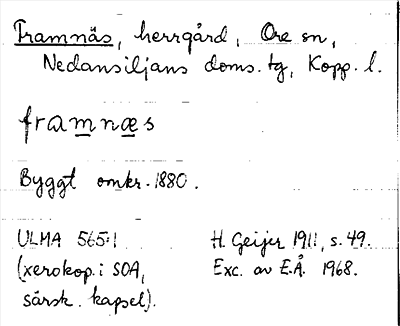 Framnäs, herrgård, Ore sn,
Nedansiljans doms. tg, Kopp. l.
framnæs
Byggt omkr. 1880.
ULMA 565:1
(xerokop. i SOA,
särsk. kapsel).
H. Geijer 1911, s. 49.
Exc. av E.Å. 1968.